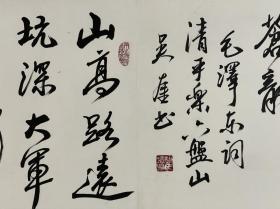 蒼龍
毛澤東詞
清平樂六盤山
吴奎书
山高路遠
坑深大軍